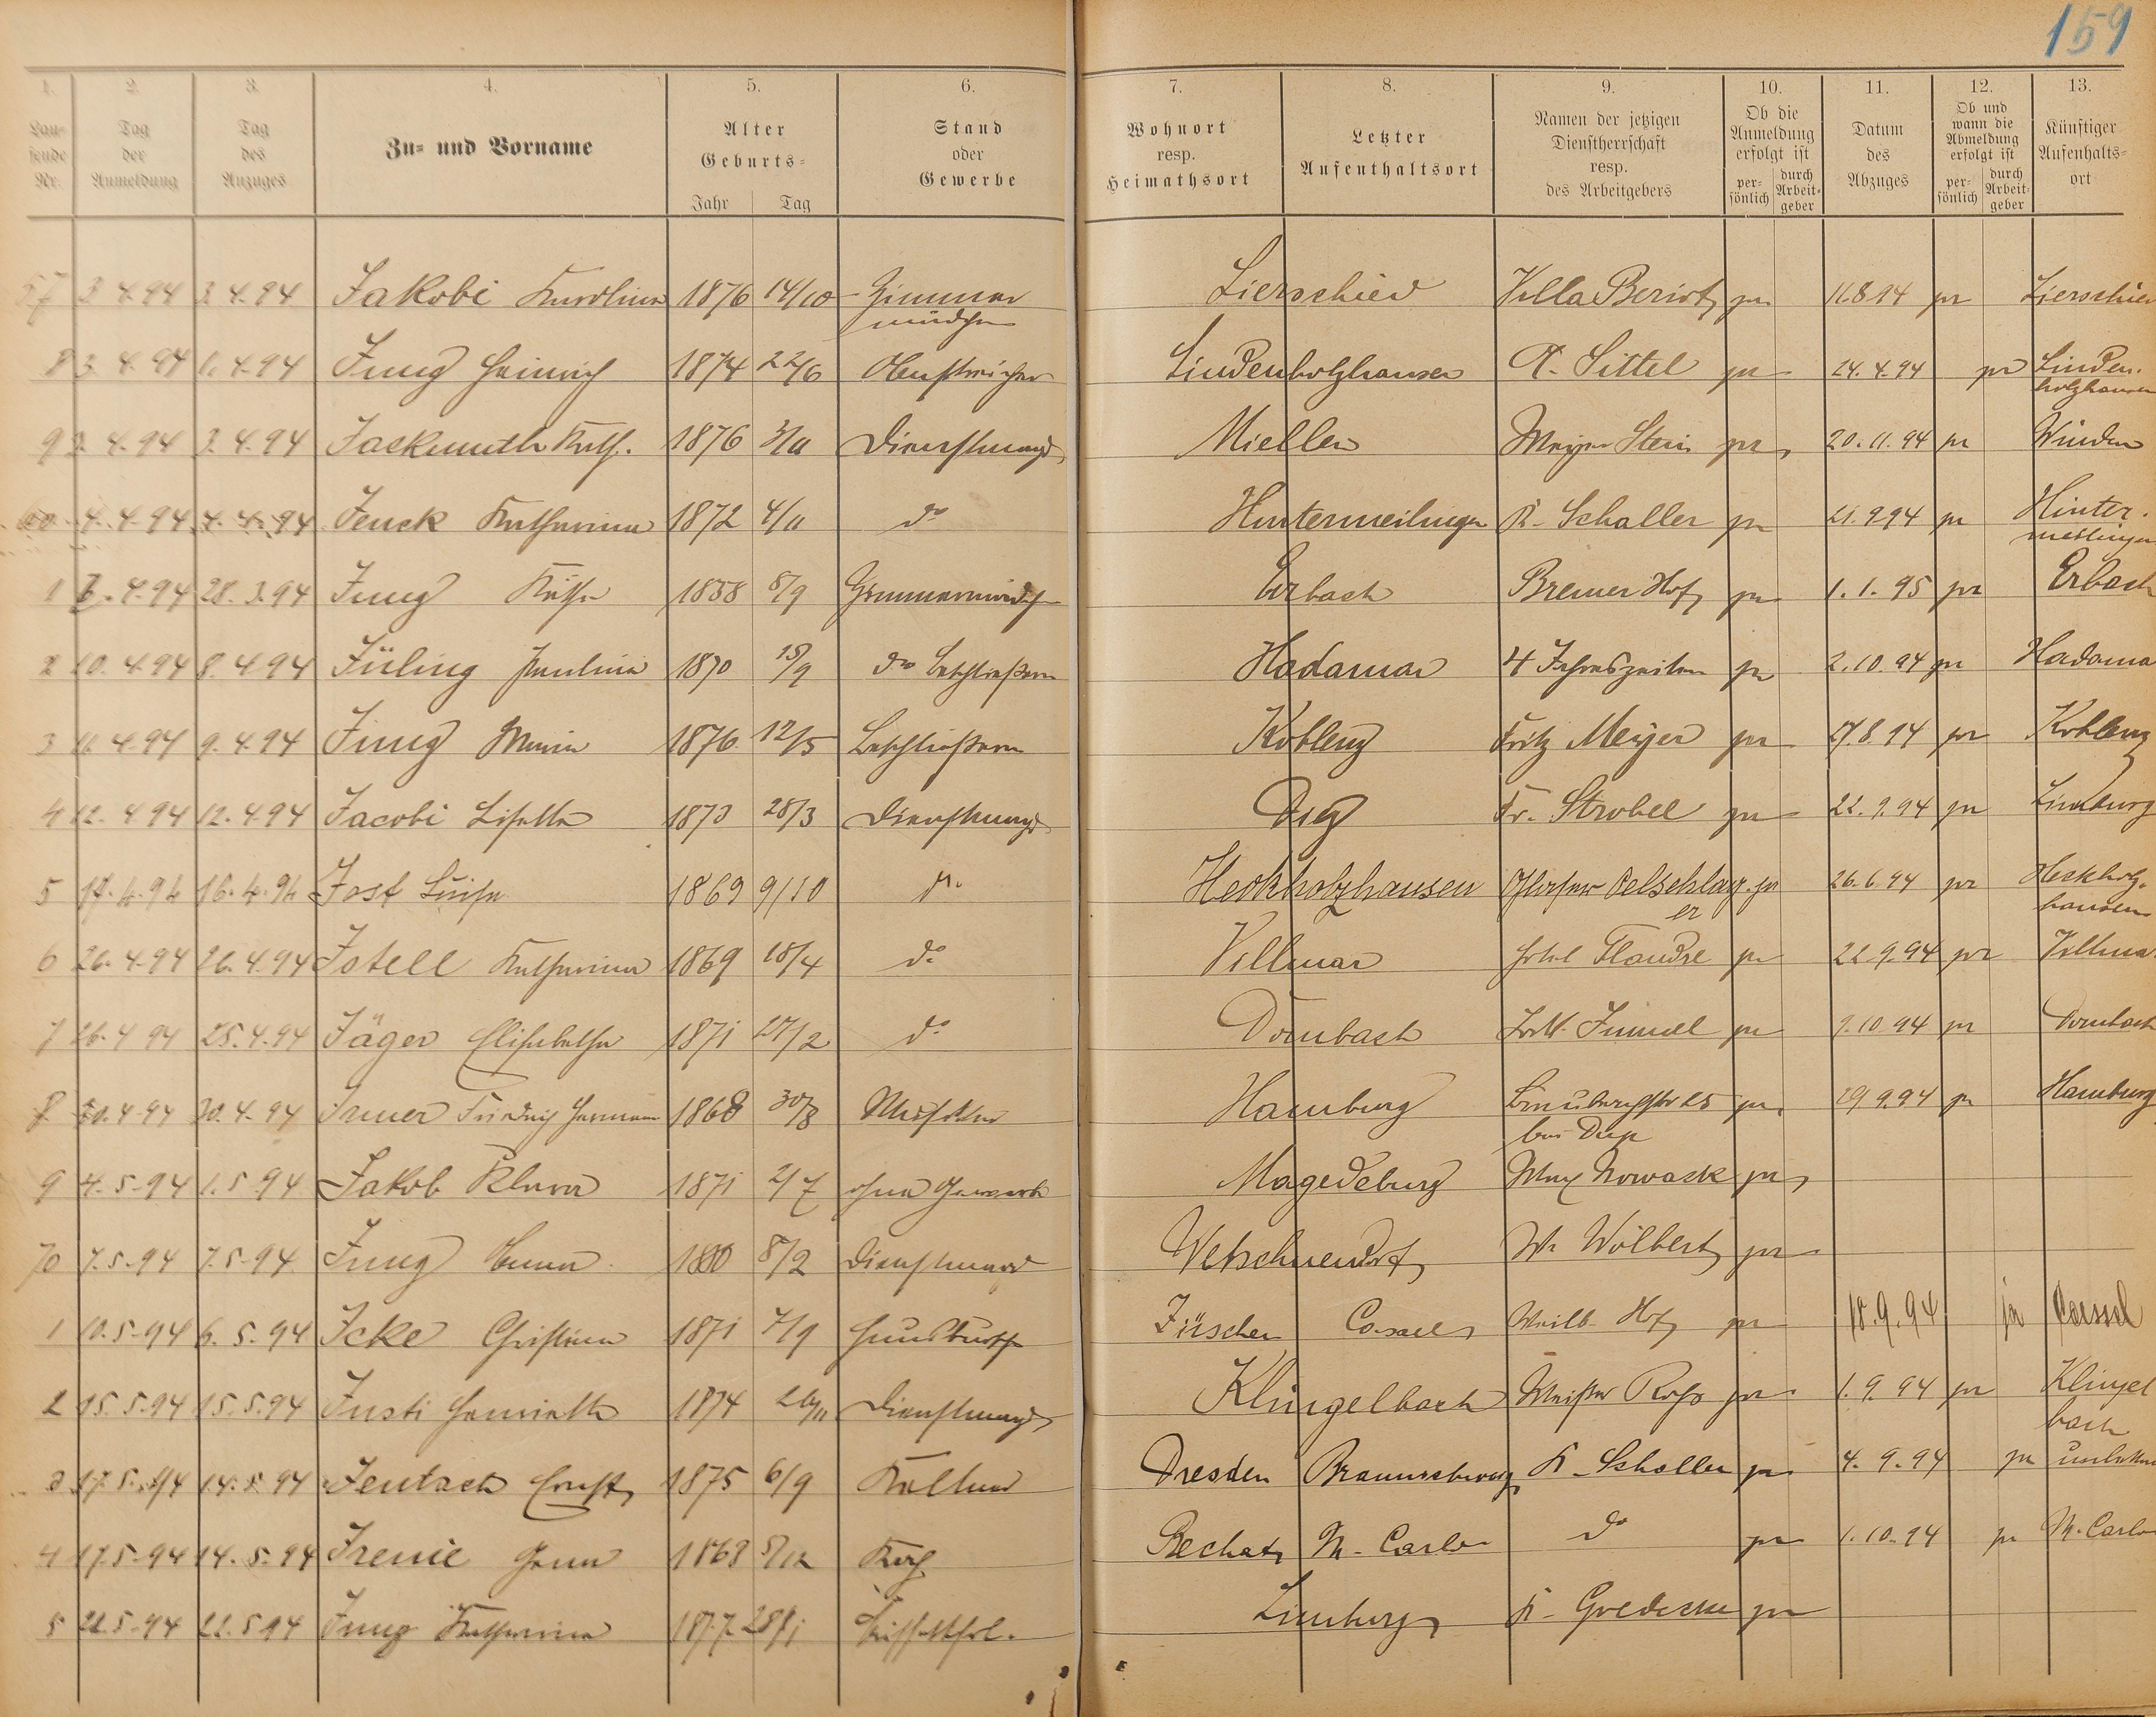 159
1. 2. 3. 4. 5. 6. 7. 8. 9. 10. 11. 12. 13.
Lau-
fende
Nr.
Tag
der
Anmeldung
Tag
des
Anzuges
Zu- und Vorname
Alter
Geburts-
Jahr Tag
Stand
oder
Gewerbe
Wohnort
resp.
Heimathsort
Letzter
Aufenthaltsort
Namen der jetzigen
Dienstherrschaft
resp.
des Arbeitgebers
Ob die
Anmeldung
erfolgt ist
per-
sönlich
durch
Arbeit-
geber
Datum
des
Abzuges
Ob und
wann die
Abmeldung
erfolgt ist
per-
sönlich
durch
Arbeit-
geber
Künftiger
Aufenhalts-
ort
57 3 4.94 3 4.94 Jakobi Karolina 1876 14/10 Zimmer Lierschied Villa Beriot pr 11.8.94 pr Lierschied
mädchen
8 3. 4. 94 1. 4.94 Jung Heinrich 1874 22/6 Lindenholzhausen A. Sittel pr 24. 4. 94 pr Linden.
holzhausen
9 3. 4.94 3. 4.94 Jackmuth Kath. 1876 3/11 Dienstmagd Miellen Meyer Stein pr 20.11.94 pr Winden
60 4. 4. 94 4. 4. 94 Jenck Katharina 1872 4/11 do Hintermeilingen R. Schaller pr 21. 9 94 pr Hinter.
meilingen
1 4.94 28. 3.94 Jung Käthe 8/9 Zimmermädch Erbach Bremer Hof pr 1. 1. 95 pr Erbach
2 10. 4.94 8. 4.94 Jüling Paulina 1870 15/9 do Beschließerin Hadamar 4 Jahreszeiten pr 2. 10. 94 pr Hadama
3 11. 4.94 9. 4.94 Jung Maria 1876 12/5 Beschließerin Koblenz Fritz Meyer pr 27. 8. 94 pr Koblenz
4 12. 4 94 12. 4.94 Jacobi Lisetta 1873 28/3 Dienstmagd Diez Fr. Strobel pr 22. 9.94 pr Limburg
5 17. 4. 94 16. 4. 94 Jost Luise 1869 9/10 do Heckholzhausen Oelschlag pr 26. 6. 94 pr Heckholz.
er hausen
6 26. 4.94 26. 4.94 Jstell Katharina 1869 18/4 do Villmar Hotel Flandre pr 22. 9. 94 pr Villmar
7 26. 4 94 25. 4. 94 Jäger Elisabetha 1871 27/2 do Dombach Immel pr 9. 10 94 pr Dombach
8 30. 4 94 30. 4. 94 Irmer Friedrich Hermann 1868 30/8 Musiker Hamburg 25 pr 29 9.94 pr Hamburg
bei
9 4. 5. 94 1. 5 94 Jakob Klara 1871 2/7 ohne Gewerbe Magedeburg Max Nowack pr
70 7. 5. 94 7. 5. 94 Jung Anna 8/2 Dienstmagd W. Wölbert pr
1 10. 5. 94 6. 5. 94 Icke Christian 1871 7/9 Hausbursche Cassel Weilb. Hof pr 18. 9. 94 pr Cassel
2 15. 5. 94 15. 5. 94 Justi Henriette 1874 Dienstmagd Klingelbach pr 1. 9. 94 pr Klingel
bach
3 17. 5. 94 14. 5. 94 Jentzsch Ernst 1875 6/9 Kellner Dresden Braunschweig K. Schaller pr 4. 9. 94 pr unbekan
4 17 5. 94 14. 5. 94 Irenie 1868 5/12 Koch M. Carlo do pr 1. 10. 94 pr M. Carlo
5 22 5. 94 22. 5 94 Jung Katharina 1877 28/1 Limburg pr